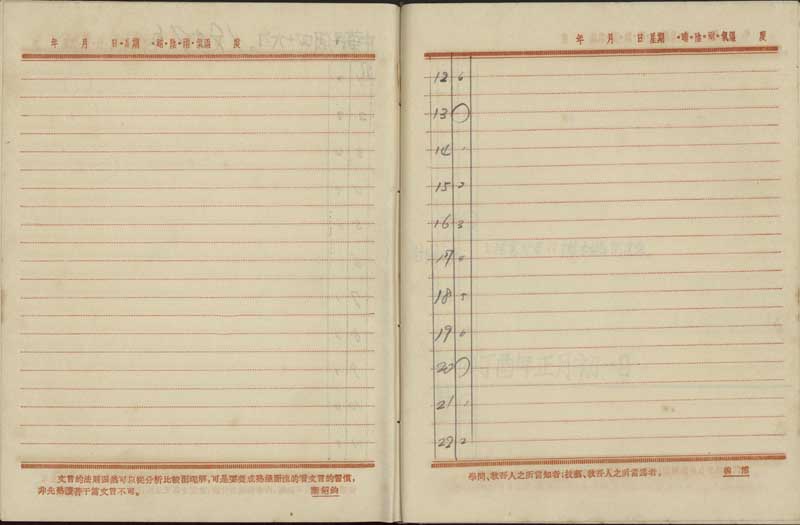 年 月 日 星期 晴 陰 雨 氣溫 度
文言的法則固然可以從分析比較而理解,可是要養成熟極而流的看文言的習慣,
非先熟讀若干篇文言不可。
年 月 日 星期 晴 陰 雨 氣溫 度
12 6
13
14 1
15 2
16 3
17
18 5
19 6
20
21 1
22 2
學問、敎吾人之所當知者;技藝、敎吾人之所當爲者。